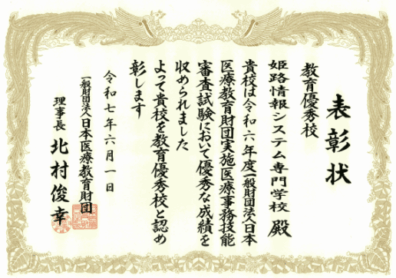 表彰状
教育優秀校
姫路情報システム専門学校 殿
貴校は令和六年度一般財団法人日本
医療教育財団実施医療事務技能
審査試験において優秀な成績を
収められました
よって貴校を教育優秀校と認め
彰します
令和七年六月一日
一般財団法人日本医療教育財団
理事長 北村俊幸